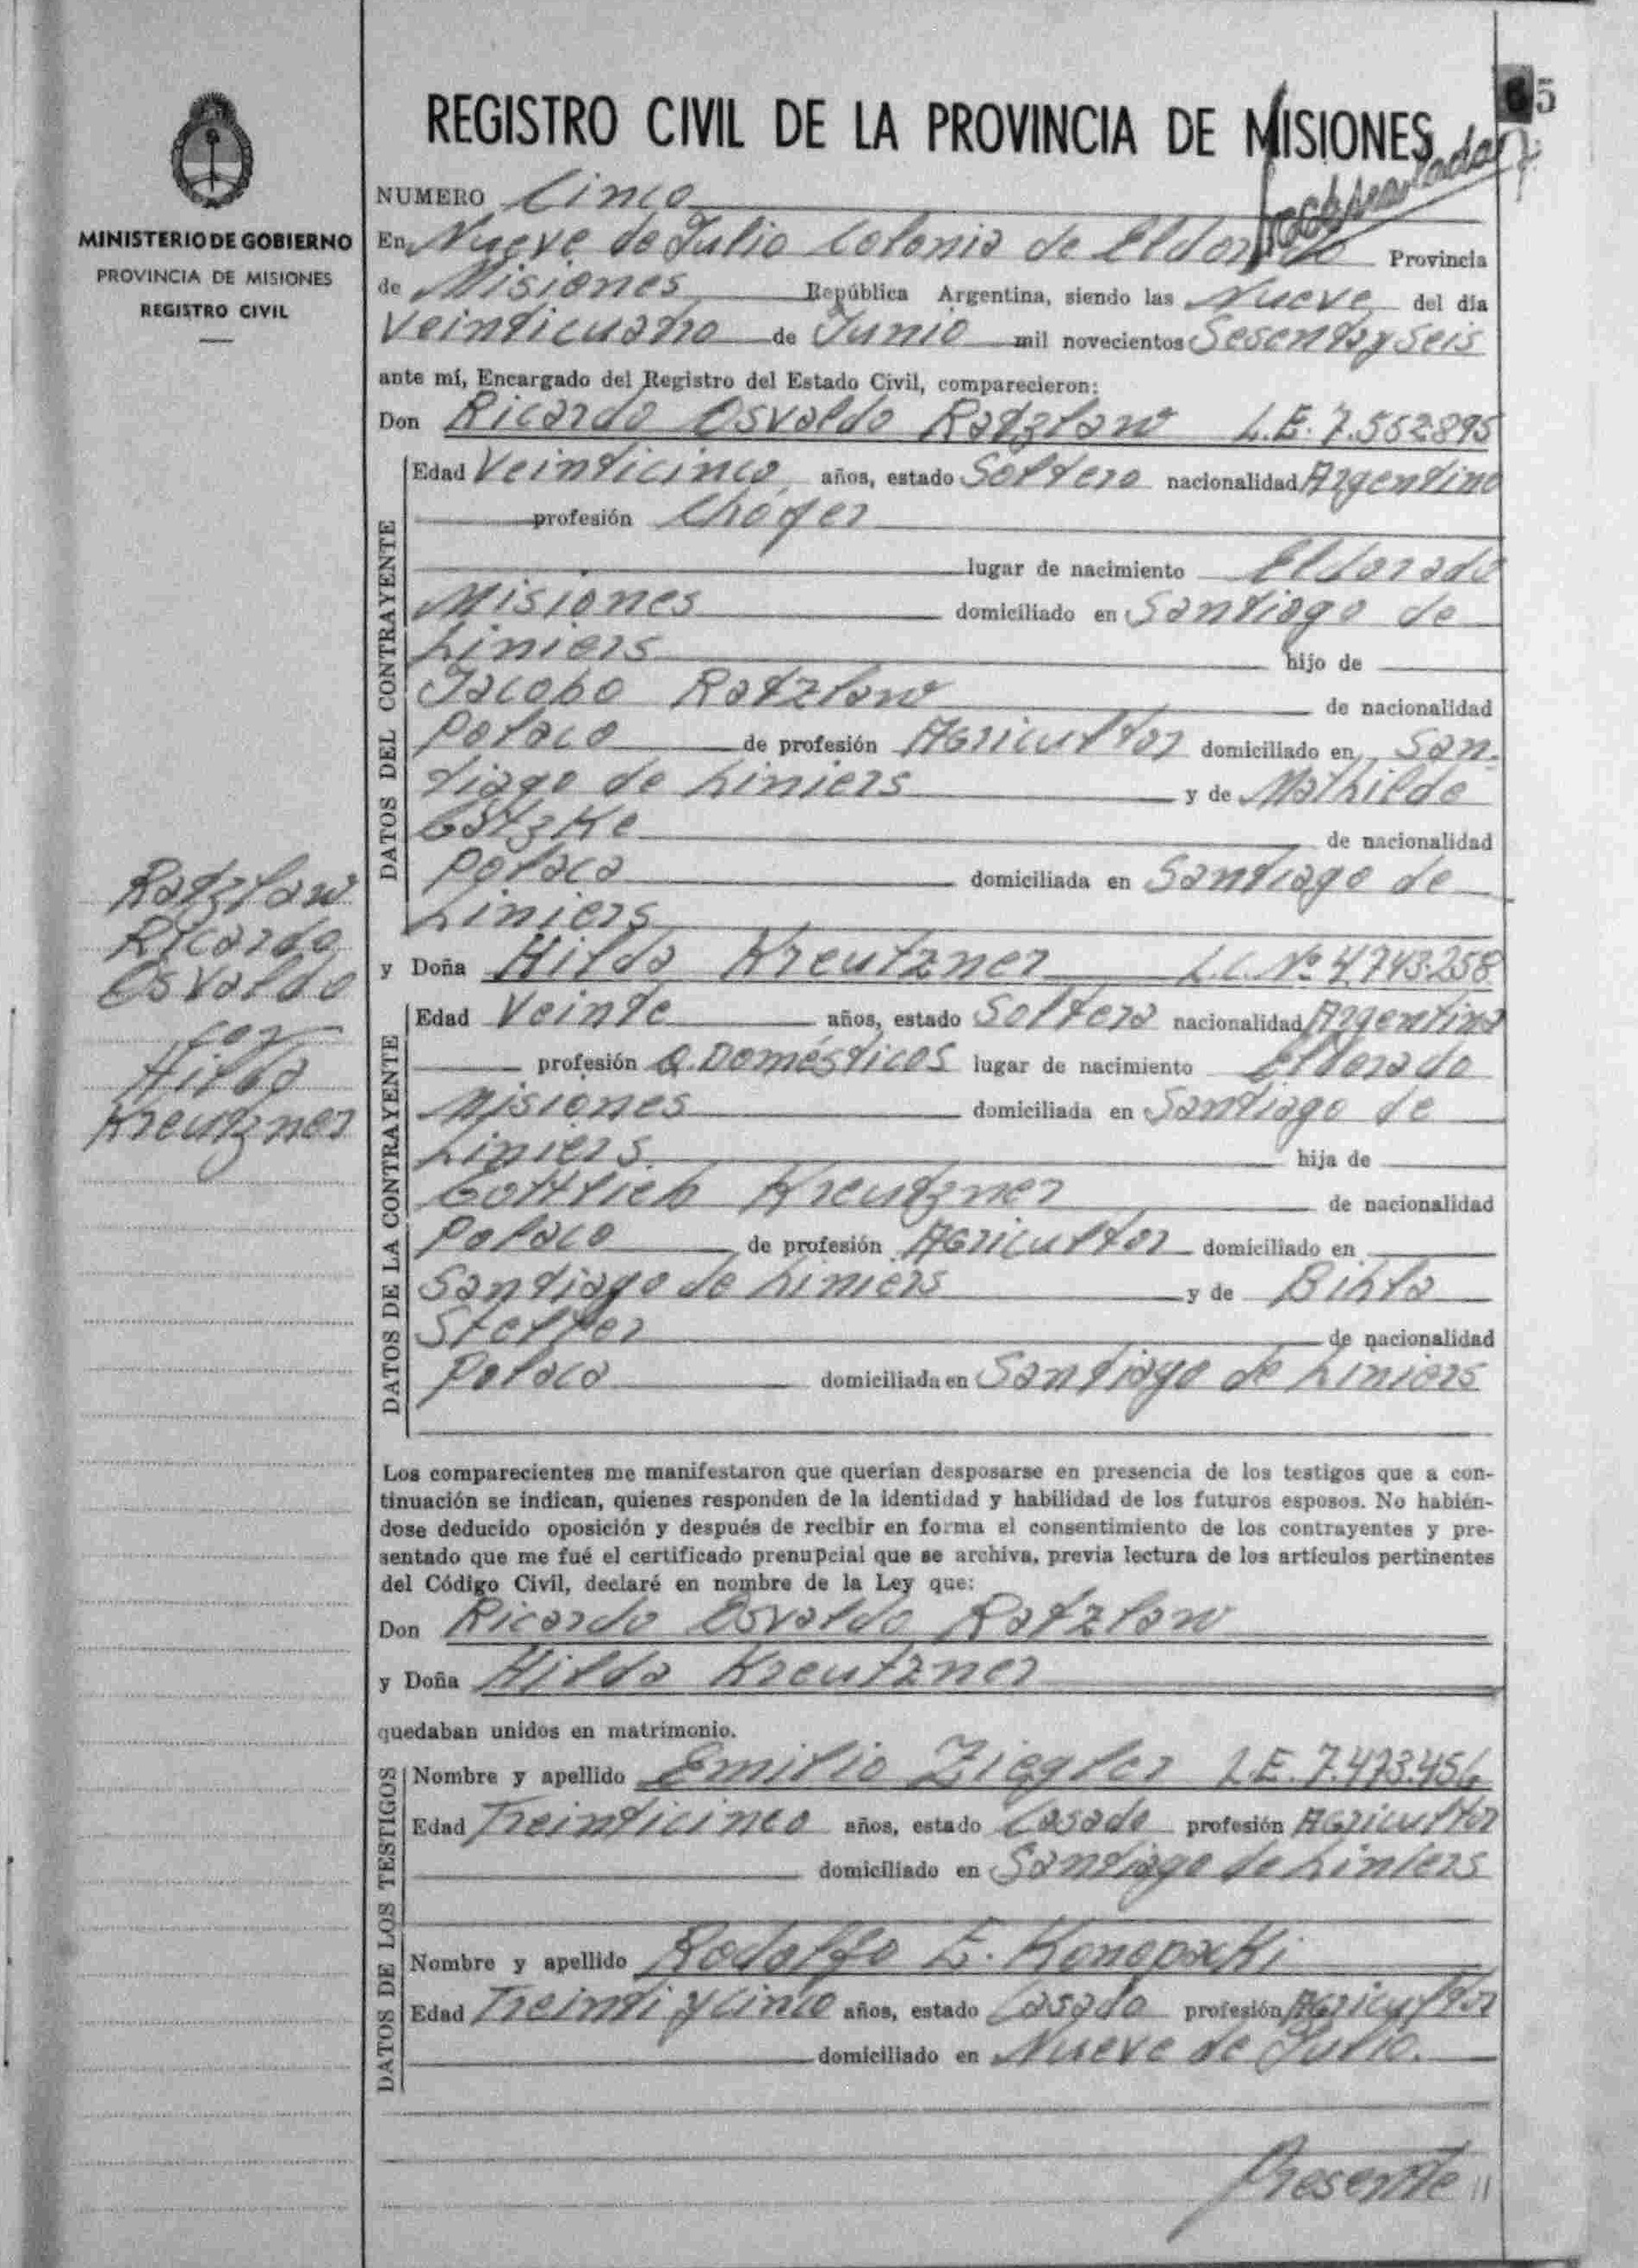 5
REGISTRO CIVIL DE LA PROVINCIA DE MISIONES
MINISTERIO DE GOBIERNO
PROVINCIA DE MISIONES
REGISTRO CIVIL
NUMERO Cinco
En Nueve de Julio Colonia de Eldorado Provincia
de Misiones República Argentina, siendo las Nueve del día
Veinticuatro de Junio mil novecientos Sesenta y Seis
ante mí, Encargado del Registro del Estado Civil, comparecieron:
Don Ricardo Osvaldo Ratzlaw L.E. 7.552895
DATOS DEL CONTRAYENTE
Edad Veinticinco años, estado Soltero nacionalidad Argentino
profesión Chofer
lugar de nacimiento Eldorado
Misiones domiciliado en Santiago de
Liniers hijo de
Jacobo Ratzlaw de nacionalidad
Polaco de profesión Agricultor domiciliado en San-
tiago de Liniers y de Mathilde
Gatzke de nacionalidad
Polaca domiciliada en Santiago de
Liniers
Ratzlaw
Ricardo
Osvaldo
con
Hilda
Kreutzner
y Doña Hilda Kreutzner L.C. Nº 4.743.258
DATOS DE LA CONTRAYENTE
Edad Veinte años, estado Soltera nacionalidad Argentina
profesión Q. Domésticos lugar de nacimiento Eldorado
Misiones domiciliada en Santiago de
Liniers. hija de
Gottlieb Kreutzner de nacionalidad
Polaco de profesión Agricultor domiciliado en
Santiago de Liniers y de Bihla
Stelter de nacionalidad
Polaca domiciliada en Santiago de Liniers
Los comparecientes me manifestaron que querían desposarse en presencia de los testigos que a con-
tinuación se indican, quienes responden de la identidad y habilidad de los futuros esposos. No habién-
dose deducido oposición y después de recibir en forma el consentimiento de los contrayentes y pre-
sentado que me fué el certificado prenupcial que se archiva, previa lectura de los artículos pertinentes
del Código Civil, declaré en nombre de la Ley que:
Don Ricardo Osvaldo Ratzlaw
y Doña Hilda Kreutzner
quedaban unidos en matrimonio.
DATOS DE LOS TESTIGOS
Nombre y apellido Emilio Ziegler L.E. 7.473.456
Edad Treinticinco años, estado Casado profesión Agricultor
domiciliado en Santiago de Liniers
Nombre y apellido Rodolfo E. Konopacki
Edad Treinti y cinco años, estado Casado profesión Agricultor
domiciliado en Nueve de Julio.
Presente //